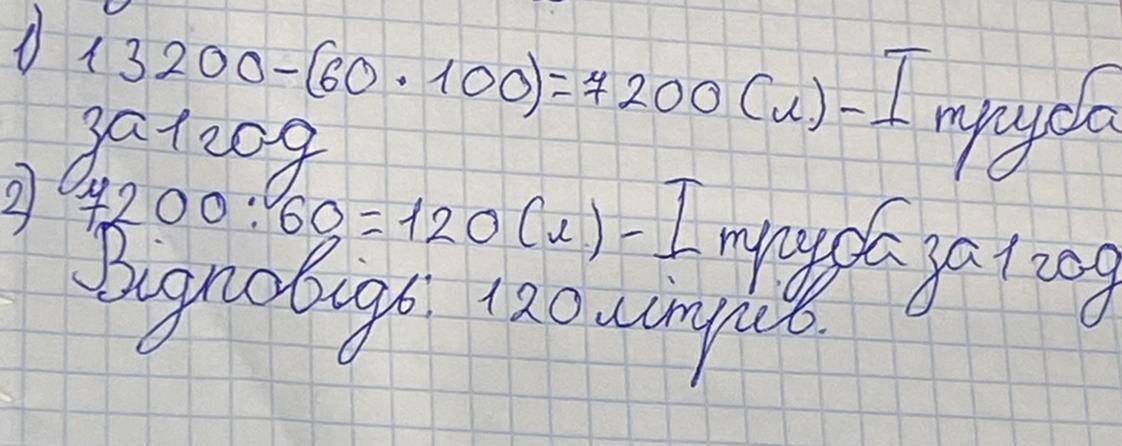 1) 13200-(60·100)=7200(л)-I труба
за 1 год
2) 7200:60=120(л)-I труба за 1 год
Відповідь: 120 літрів.